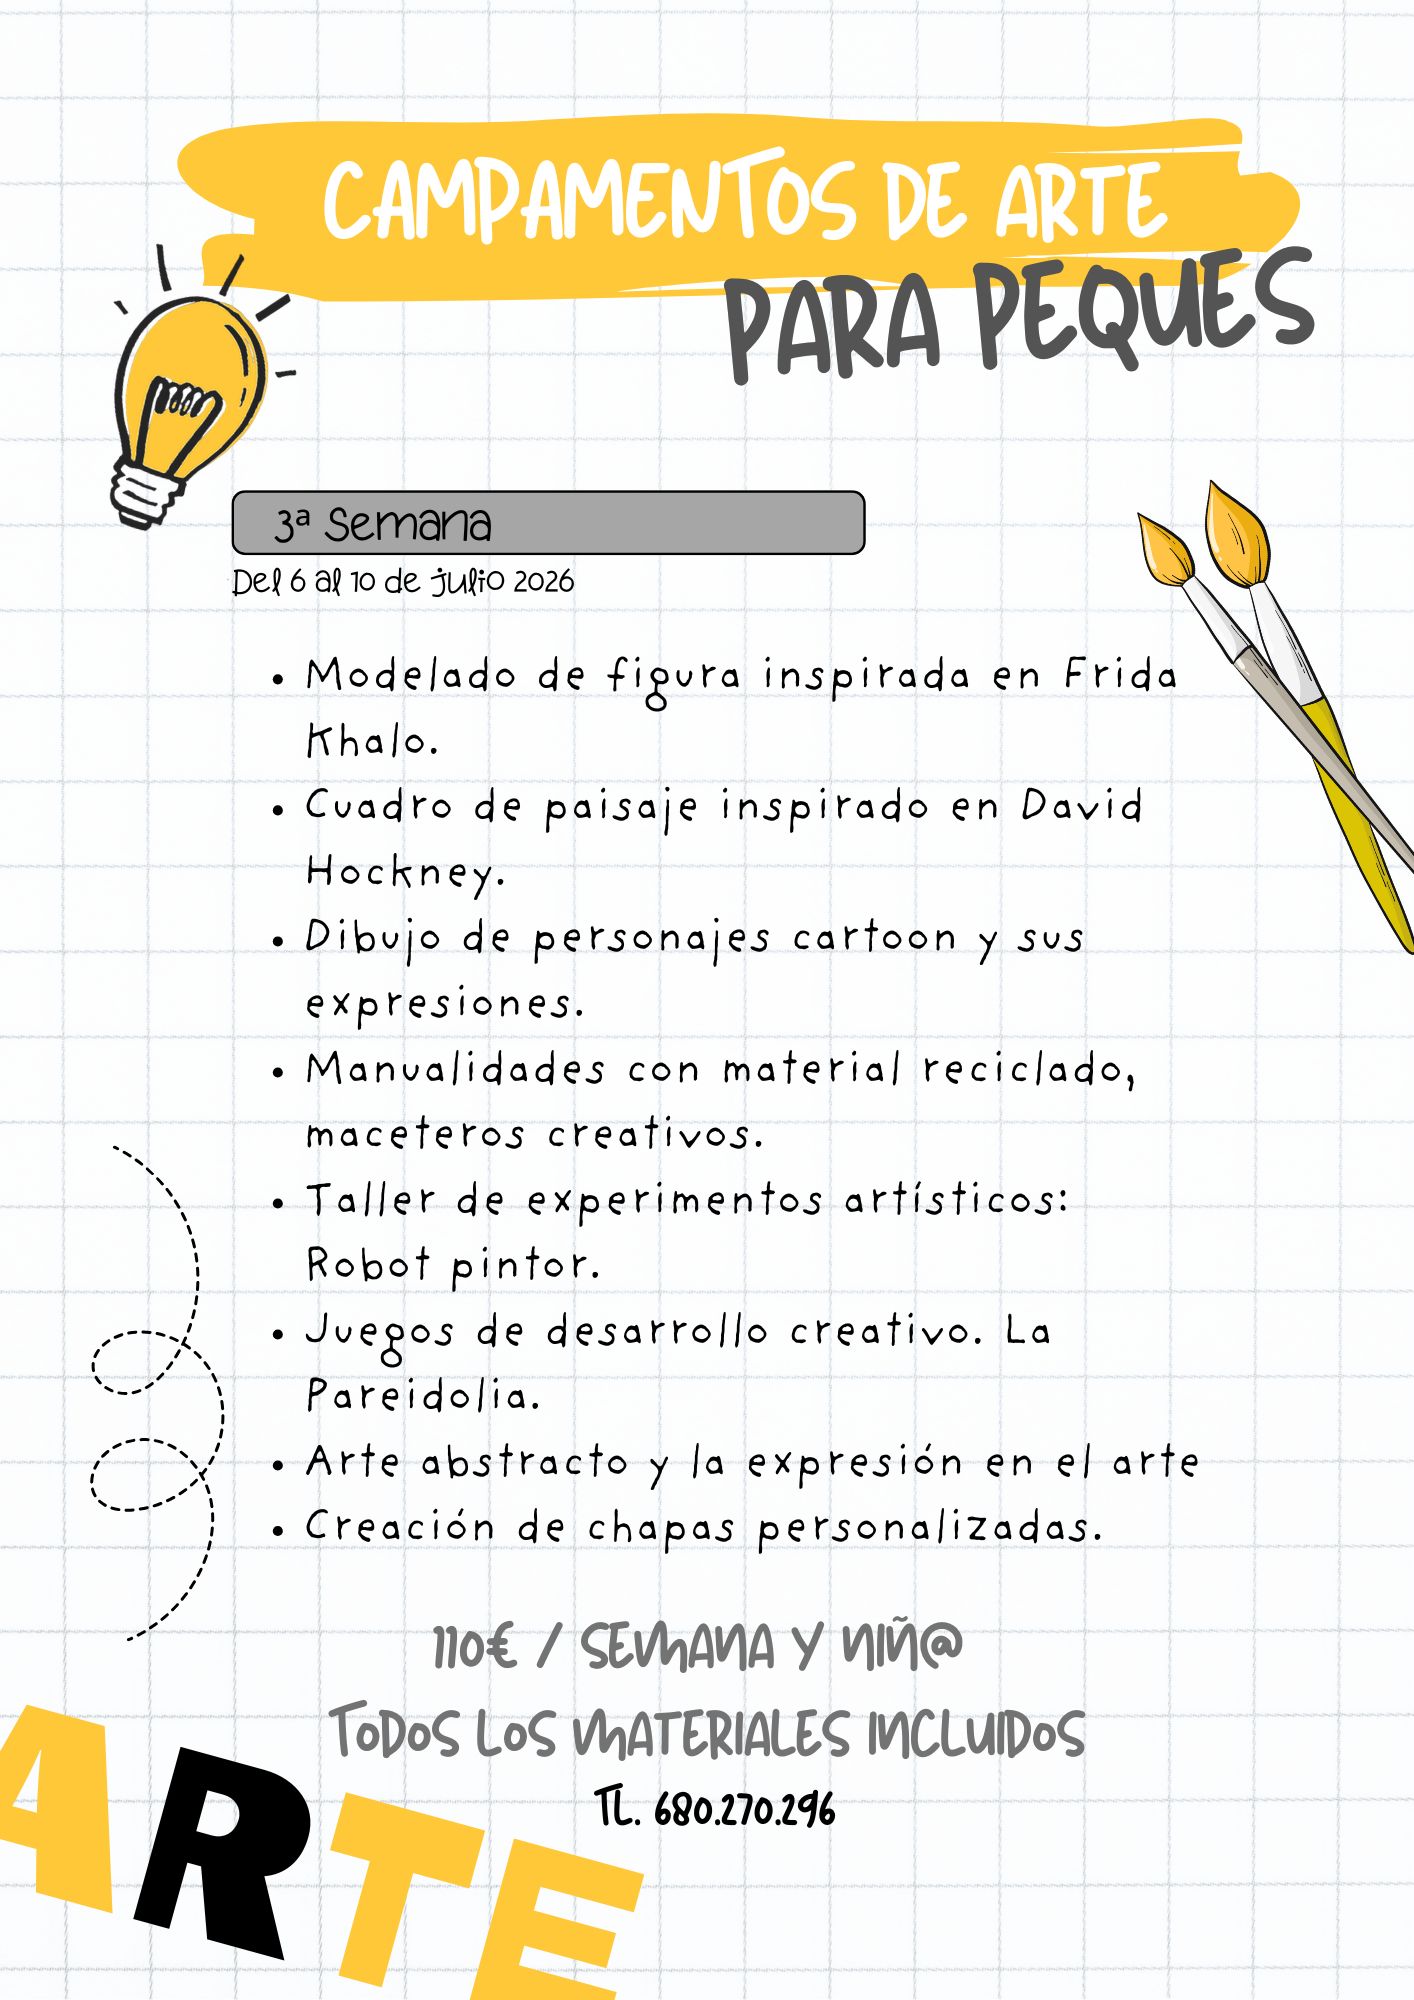 CAMPAMENTOS DE ARTE
PARA PEQUES
3ª Semana
Del 6 al 10 de julio 2026
• Modelado de figura inspirada en Frida
Khalo.
• Cuadro de paisaje inspirado en David
Hockney.
• Dibujo de personajes cartoon y sus
expresiones.
• Manualidades con material reciclado,
maceteros creativos.
• Taller de experimentos artísticos:
Robot pintor.
• Juegos de desarrollo creativo. La
Pareidolia.
• Arte abstracto y la expresión en el arte
• Creación de chapas personalizadas.
110€ / SEMANA Y NIÑ@
TODOS LOS MATERIALES INCLUIDOS
TL. 680.270.296
ARTE